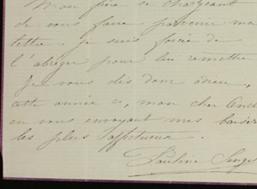 Mon frère se chargeant
de vous faire parvenir ma
lettre, je suis forcée de
l'abréger pour la remettre
Je vous dis donc adieu,
cette année ci, mon cher
en vous envoyant mes baisers
les plus affectueux.
Pauline